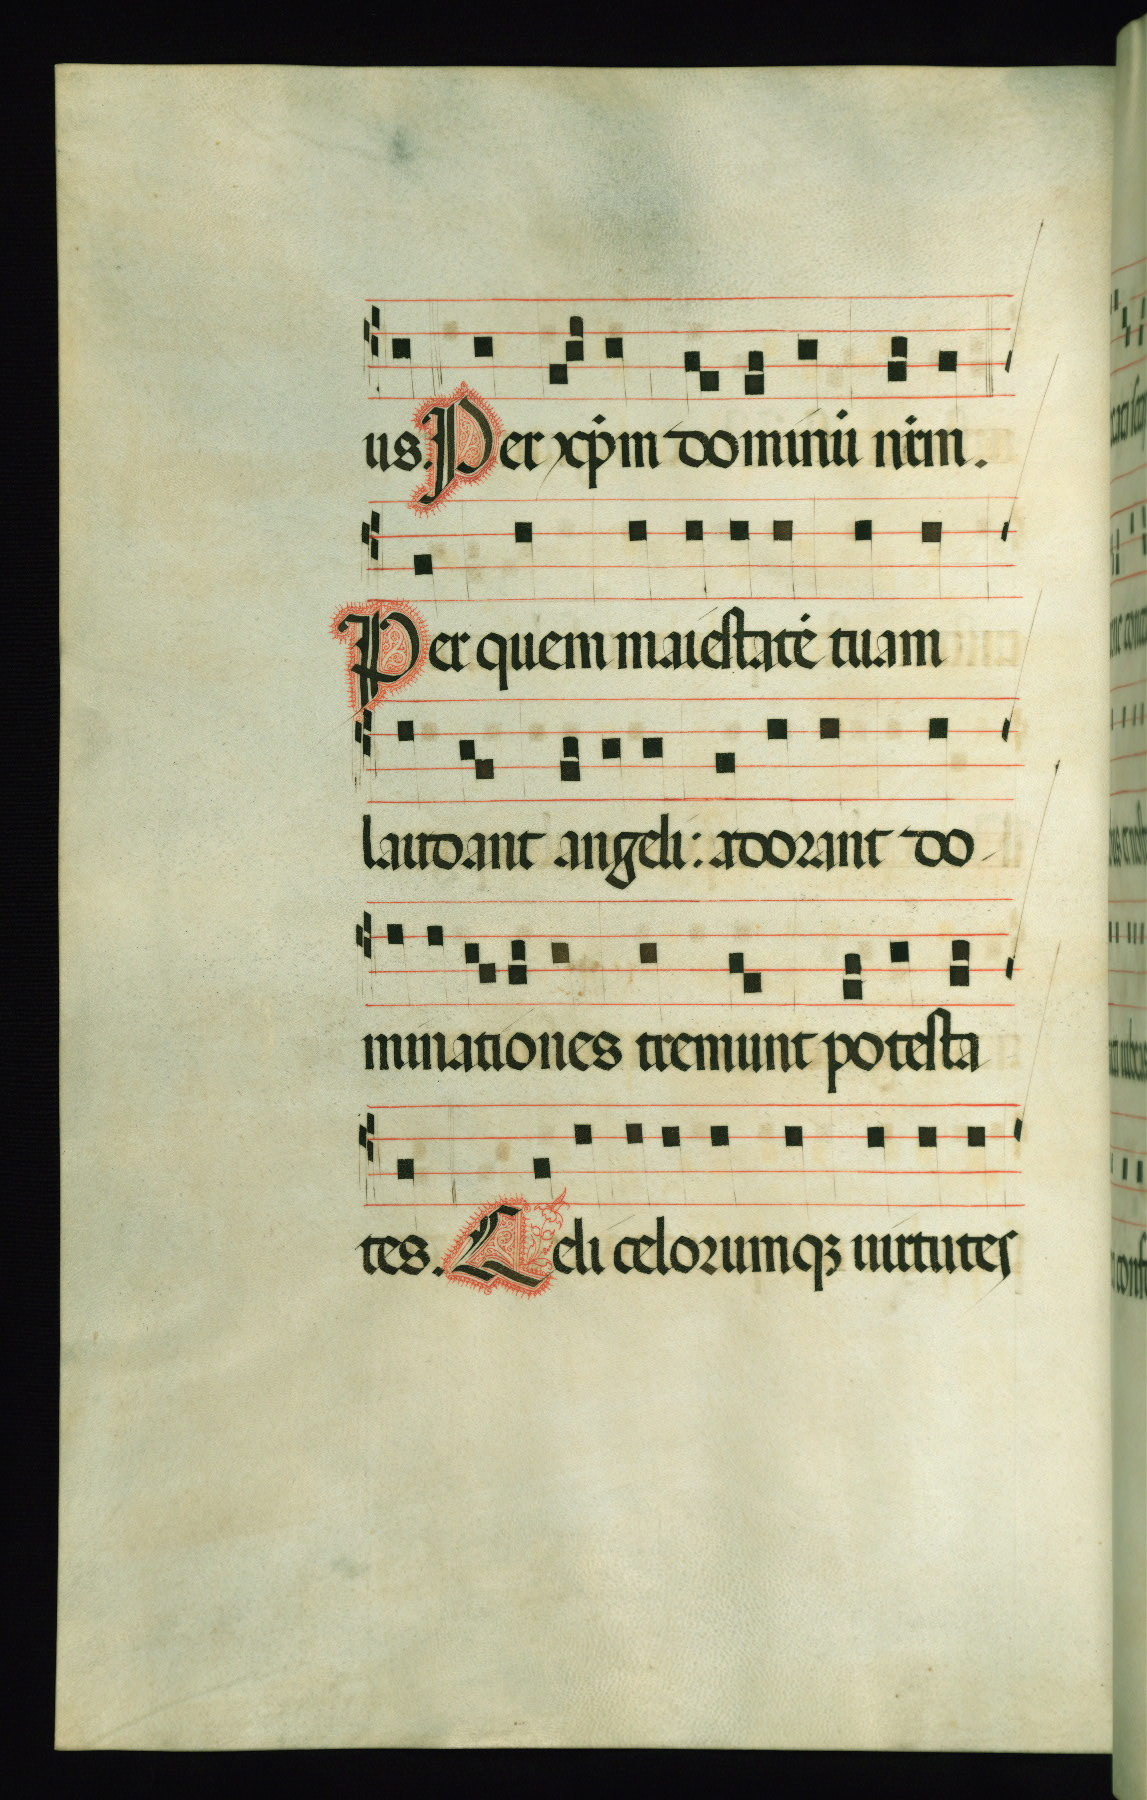 us. Per xp̄m dominū nr̄m.
Per quem maiestatē tuam
laudant angeli: adorant do-
minationes tremunt potesta
tes. Celi celorumqꝫ uirtutes